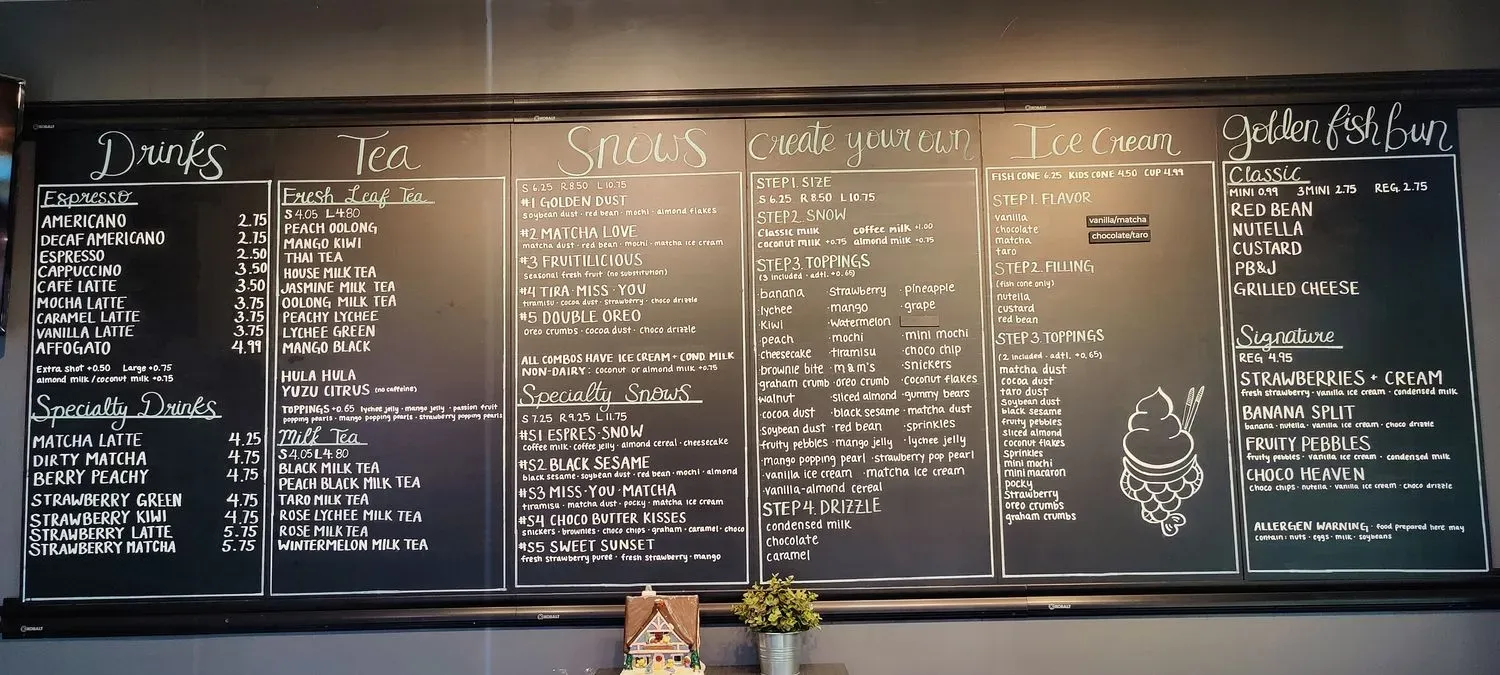 Drinks
Espresso
AMERICANO 2.75
DECAF AMERICANO 2.75
ESPRESSO 2.50
CAPPUCCINO 3.50
CAFÉ LATTE 3.50
MOCHA LATTE 3.75
CARAMEL LATTE 3.75
VANILLA LATTE 3.75
AFFOGATO 4.99
Extra shot +0.50 Large +0.75
almond milk / coconut milk +0.75
Specialty Drinks
MATCHA LATTE 4.25
DIRTY MATCHA 4.75
BERRY PEACHY 4.75
STRAWBERRY GREEN 4.75
STRAWBERRY KIWI 4.75
STRAWBERRY LATTE 5.75
STRAWBERRY MATCHA 5.75
Tea
Fresh Leaf Tea
S 4.05 L 4.80
PEACH OOLONG
MANGO KIWI
THAI TEA
HOUSE MILK TEA
JASMINE MILK TEA
OOLONG MILK TEA
PEACHY LYCHEE
LYCHEE GREEN
MANGO BLACK
HULA HULA
YUZU CITRUS (no caffeine)
TOPPINGS +0.65 lychee jelly · mango jelly · passion fruit
popping pearls · mango popping pearls · strawberry popping pearls
Milk Tea
S 4.05 L 4.80
BLACK MILK TEA
PEACH BLACK MILK TEA
TARO MILK TEA
ROSE LYCHEE MILK TEA
ROSE MILK TEA
WINTERMELON MILK TEA
Snows
S 6.25 R 8.50 L 10.75
#1 GOLDEN DUST
soybean dust · red bean · mochi · almond flakes
#2 MATCHA LOVE
matcha dust · red bean · mochi · matcha ice cream
#3 FRUITILICIOUS
Seasonal fresh fruit (no substitution)
#4 TIRA·MISS·YOU
tiramisu · cocoa dust · strawberry · choco drizzle
#5 DOUBLE OREO
oreo crumbs · cocoa dust · choco drizzle
ALL COMBOS HAVE ICE CREAM + COND MILK
NON-DAIRY: coconut or almond milk +0.75
Specialty Snows
S 7.25 R 9.25 L 11.75
#S1 ESPRES·SNOW
coffee milk · coffee jelly · almond cereal · cheesecake
#S2 BLACK SESAME
black sesame · soybean dust · red bean · mochi · almond
#S3 MISS·YOU·MATCHA
tiramisu · matcha dust · pocky · matcha ice cream
#S4 CHOCO BUTTER KISSES
snickers · brownies · choco chips · graham · caramel · choco
#S5 SWEET SUNSET
fresh strawberry puree · fresh strawberry · mango
create your own
STEP 1. SIZE
S 6.25 R 8.50 L 10.75
STEP 2. SNOW
Classic milk coffee milk +1.00
coconut milk +0.75 almond milk +0.75
STEP 3. TOPPINGS
(3 included · adtl. +0.65)
·banana ·strawberry ·pineapple
·lychee ·mango ·grape
·Kiwi ·Watermelon
·peach ·mochi ·mini mochi
·cheesecake ·tiramisu ·choco chip
·brownie bite ·m&m's ·snickers
·graham crumb ·oreo crumb ·coconut flakes
·walnut ·sliced almond ·gummy bears
·cocoa dust ·black sesame ·matcha dust
·soybean dust ·red bean ·sprinkles
·fruity pebbles ·mango jelly ·lychee jelly
·mango popping pearl ·strawberry pop pearl
·vanilla ice cream ·matcha ice cream
·vanilla-almond cereal
STEP 4. DRIZZLE
condensed milk
chocolate
caramel
Ice Cream
FISH CONE 6.25 KIDS CONE 4.50 CUP 4.99
STEP 1. FLAVOR
vanilla
chocolate
matcha
taro
vanilla/matcha
chocolate/taro
STEP 2. FILLING
(fish cone only)
nutella
custard
red bean
STEP 3. TOPPINGS
(2 included · adtl. +0.65)
matcha dust
cocoa dust
taro dust
Soybean dust
black sesame
fruity pebbles
sliced almond
coconut flakes
Sprinkles
mini mochi
mini macaron
pocky
Strawberry
oreo crumbs
graham crumbs
golden fish bun
Classic
MINI 0.99 3 MINI 2.75 REG. 2.75
RED BEAN
NUTELLA
CUSTARD
PB&J
GRILLED CHEESE
Signature
REG 4.95
STRAWBERRIES + CREAM
fresh strawberry · vanilla ice cream · condensed milk
BANANA SPLIT
banana · nutella · vanilla ice cream · choco drizzle
FRUITY PEBBLES
fruity pebbles · vanilla ice cream · condensed milk
CHOCO HEAVEN
choco chips · nutella · vanilla ice cream · choco drizzle
ALLERGEN WARNING · food prepared here may
contain: nuts · eggs · milk · soybeans
KOBALT
KOBALT
KOBALT
KOBALT
KOBALT
KOBALT